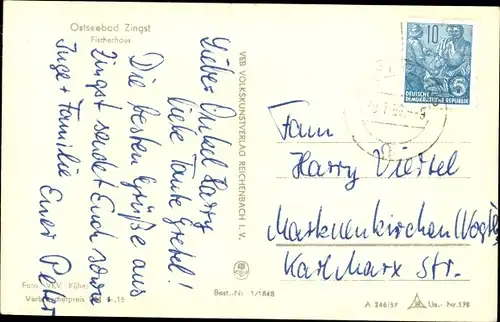 Ostseebad Zingst
Fischerhaus
Lieber Onkel Harry
liebe Tante Gretel!
Die besten Grüße aus
Zingst sendet Euch sowie
Inge + Familie Euer Peter
Foto: VKV Kühn
Verbraucherpreis
,15
VEB VOLKSKUNSTVERLAG REICHENBACH I. V.
Best.-Nr. 1/1848
10
5
DEUTSCHE
DEMOKRATISCHE REPUBLIK
Fam
Harry
Markneukirchen
Karl Marx Str.
A 246/57